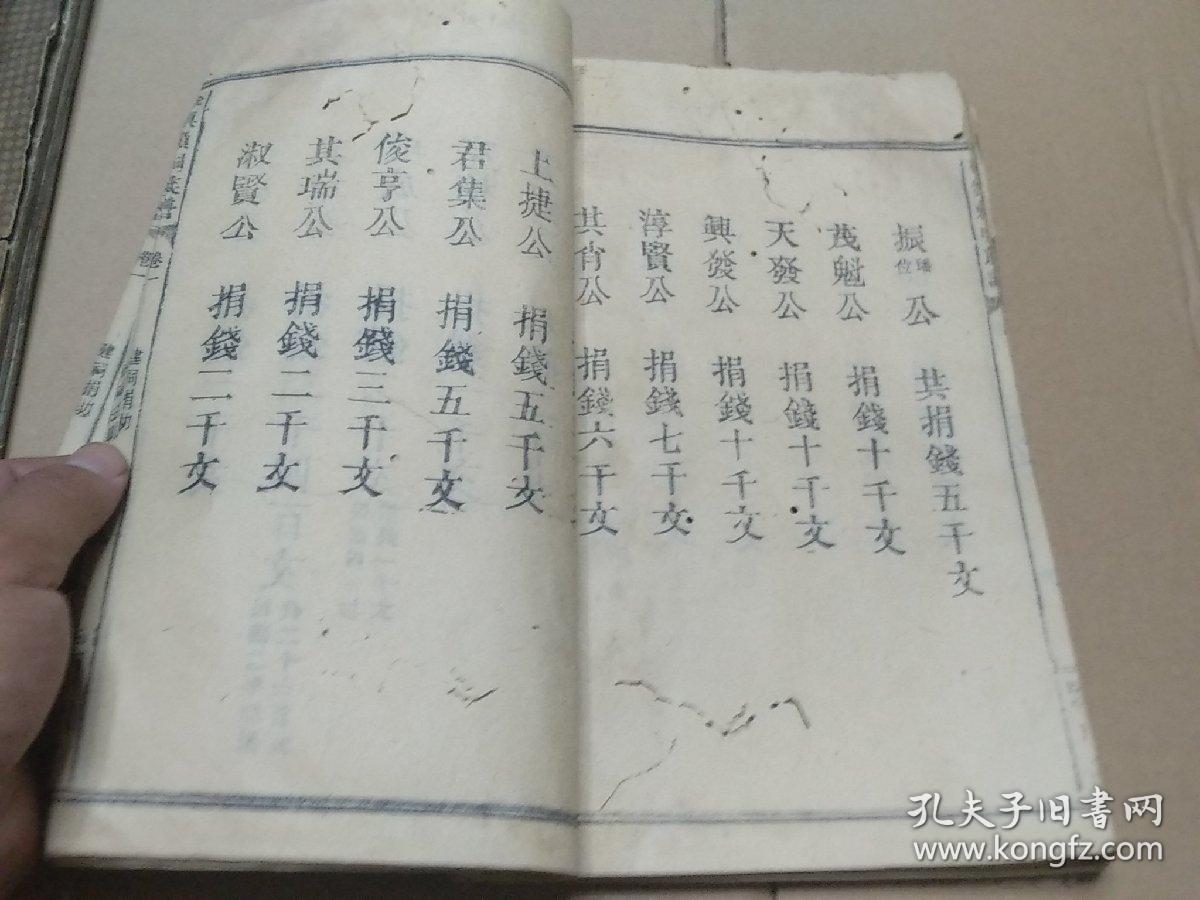 振璠位公 共捐錢五千文
茂魁公 捐錢十千文
天發公 捐錢十千文
興發公 捐錢十千文
淳賢公 捐錢七千文
其肯公 捐錢六千文
上捷公 捐錢五千文
君集公 捐錢五千文
俊亨公 捐錢三千文
其瑞公 捐錢二千文
淑賢公 捐錢二千文
卷一
建祠捐助
孔夫子旧书网
www.kongfz.com